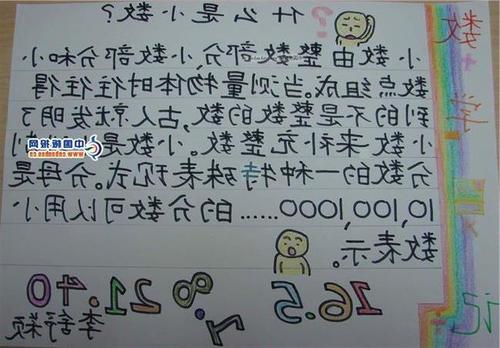 什么是小数?
小数由整数部分,小数部分和小
数点组成。当测量物体时往往得
到的不是整数的数,古人就发明了
小数来补充整数。小数是
分数的一种特殊表现形式。分母是
10,100,1000……的分数可以用小
数表示。
数
学
记
李舒颖